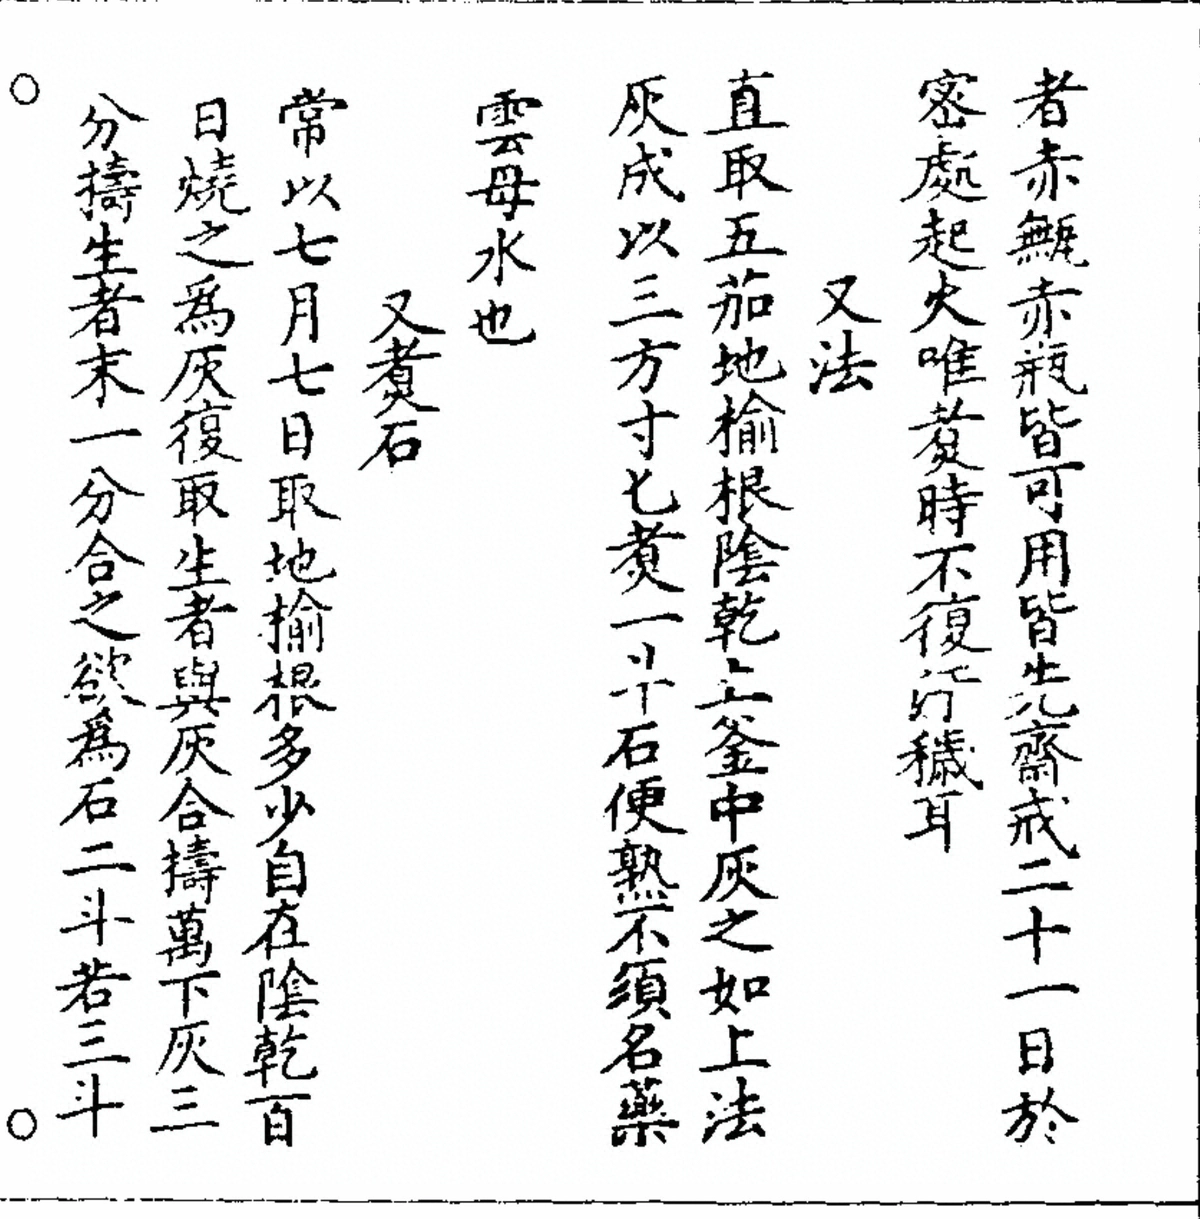 者赤甒赤瓶皆可用皆先齋戒二十一日於
密處起火唯煑時不復行穢耳
又法
直取五茄地榆根陰乾上釜中灰之如上法
灰成以三方寸匕煑一斗石便熟不須名藥
雲母水也
又煑石
常以七月七日取地榆根多少自在陰乾百
日燒之爲灰復取生者與灰合擣萬下灰三
分擣生者末一分合之欲爲石二斗若三斗